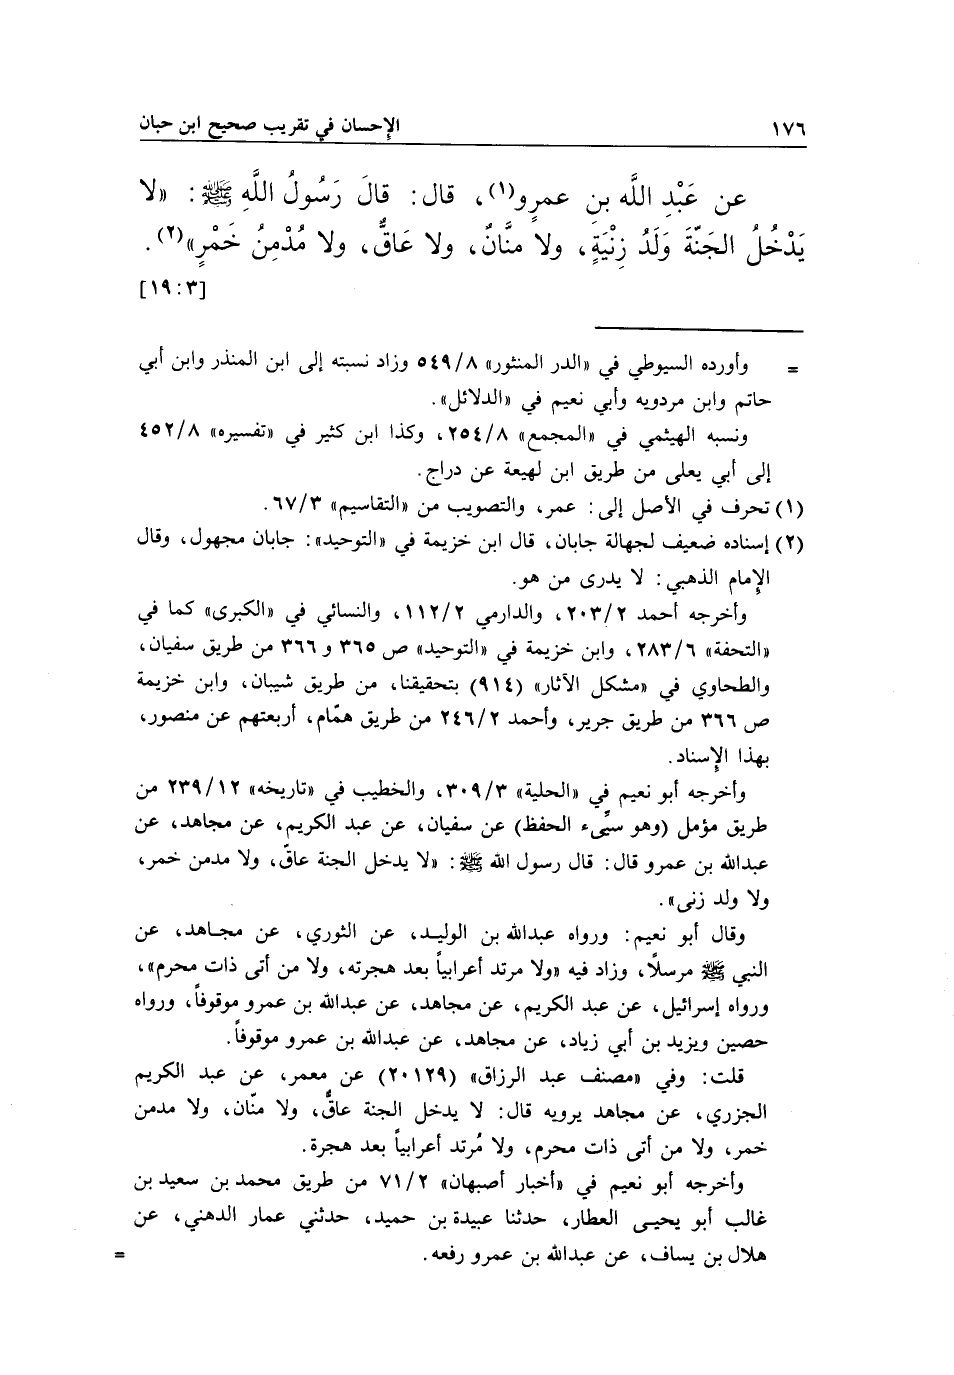 ١٧٦ الإحسان في تقريب صحيح ابن حبان
عن عَبْدِ اللَّه بنِ عمرٍو(١)، قال: قالَ رَسُولُ اللَّهِ ﷺ: «لا
يَدْخُلُ الجَنَّةَ وَلَدُ زِنْيَةٍ، ولا منَّانٌ، ولا عَاقٌّ، ولا مُدْمِنُ خَمْرٍ»(٢).
[١٩:٣]
= وأورده السيوطي في «الدر المنثور» ٥٤٩/٨ وزاد نسبته إلى ابن المنذر وابن أبي
حاتم وابن مردويه وأبي نعيم في «الدلائل».
ونسبه الهيثمي في «المجمع» ٢٥٤/٨، وكذا ابن كثير في «تفسيره» ٤٥٢/٨
إلى أبي يعلى من طريق ابن لهيعة عن دراج.
(١) تحرف في الأصل إلى: عمر، والتصويب من «التقاسيم» ٦٧/٣.
(٢) إسناده ضعيف لجهالة جابان، قال ابن خزيمة في «التوحيد»: جابان مجهول، وقال
الإمام الذهبي: لا يدرى من هو.
وأخرجه أحمد ٢٠٣/٢، والدارمي ١١٢/٢، والنسائي في «الكبرى» كما في
«التحفة» ٢٨٣/٦، وابن خزيمة في «التوحيد» ص ٣٦٥ و ٣٦٦ من طريق سفيان،
والطحاوي في «مشكل الآثار» (٩١٤) بتحقيقنا، من طريق شيبان، وابن خزيمة
ص ٣٦٦ من طريق جرير، وأحمد ٢٤٦/٢ من طريق همّام، أربعتهم عن منصور،
بهذا الإسناد.
وأخرجه أبو نعيم في «الحلية» ٣٠٩/٣، والخطيب في «تاريخه» ٢٣٩/١٢ من
طريق مؤمل (وهو سيِّىء الحفظ) عن سفيان، عن عبد الكريم، عن مجاهد، عن
عبدالله بن عمرو قال: قال رسول الله ﷺ: «لا يدخل الجنة عاقّ، ولا مدمن خمر،
ولا ولد زنى».
وقال أبو نعيم: ورواه عبدالله بن الوليد، عن الثوري، عن مجاهد، عن
النبي ﷺ مرسلًا، وزاد فيه «ولا مرتد أعرابياً بعد هجرته، ولا من أتى ذات محرم»،
ورواه إسرائيل، عن عبد الكريم، عن مجاهد، عن عبدالله بن عمرو موقوفاً، ورواه
حصين ويزيد بن أبي زياد، عن مجاهد، عن عبدالله بن عمرو موقوفاً.
قلت: وفي «مصنف عبد الرزاق» (٢٠١٢٩) عن معمر، عن عبد الكريم
الجزري، عن مجاهد يرويه قال: لا يدخل الجنة عاقٌّ، ولا منّان، ولا مدمن
خمر، ولا من أتى ذات محرم، ولا مُرتد أعرابياً بعد هجرة.
وأخرجه أبو نعيم في «أخبار أصبهان» ٧١/٢ من طريق محمد بن سعيد بن
غالب أبو يحيى العطار، حدثنا عبيدة بن حميد، حدثني عمار الدهني، عن
هلال بن يساف، عن عبدالله بن عمرو رفعه. =